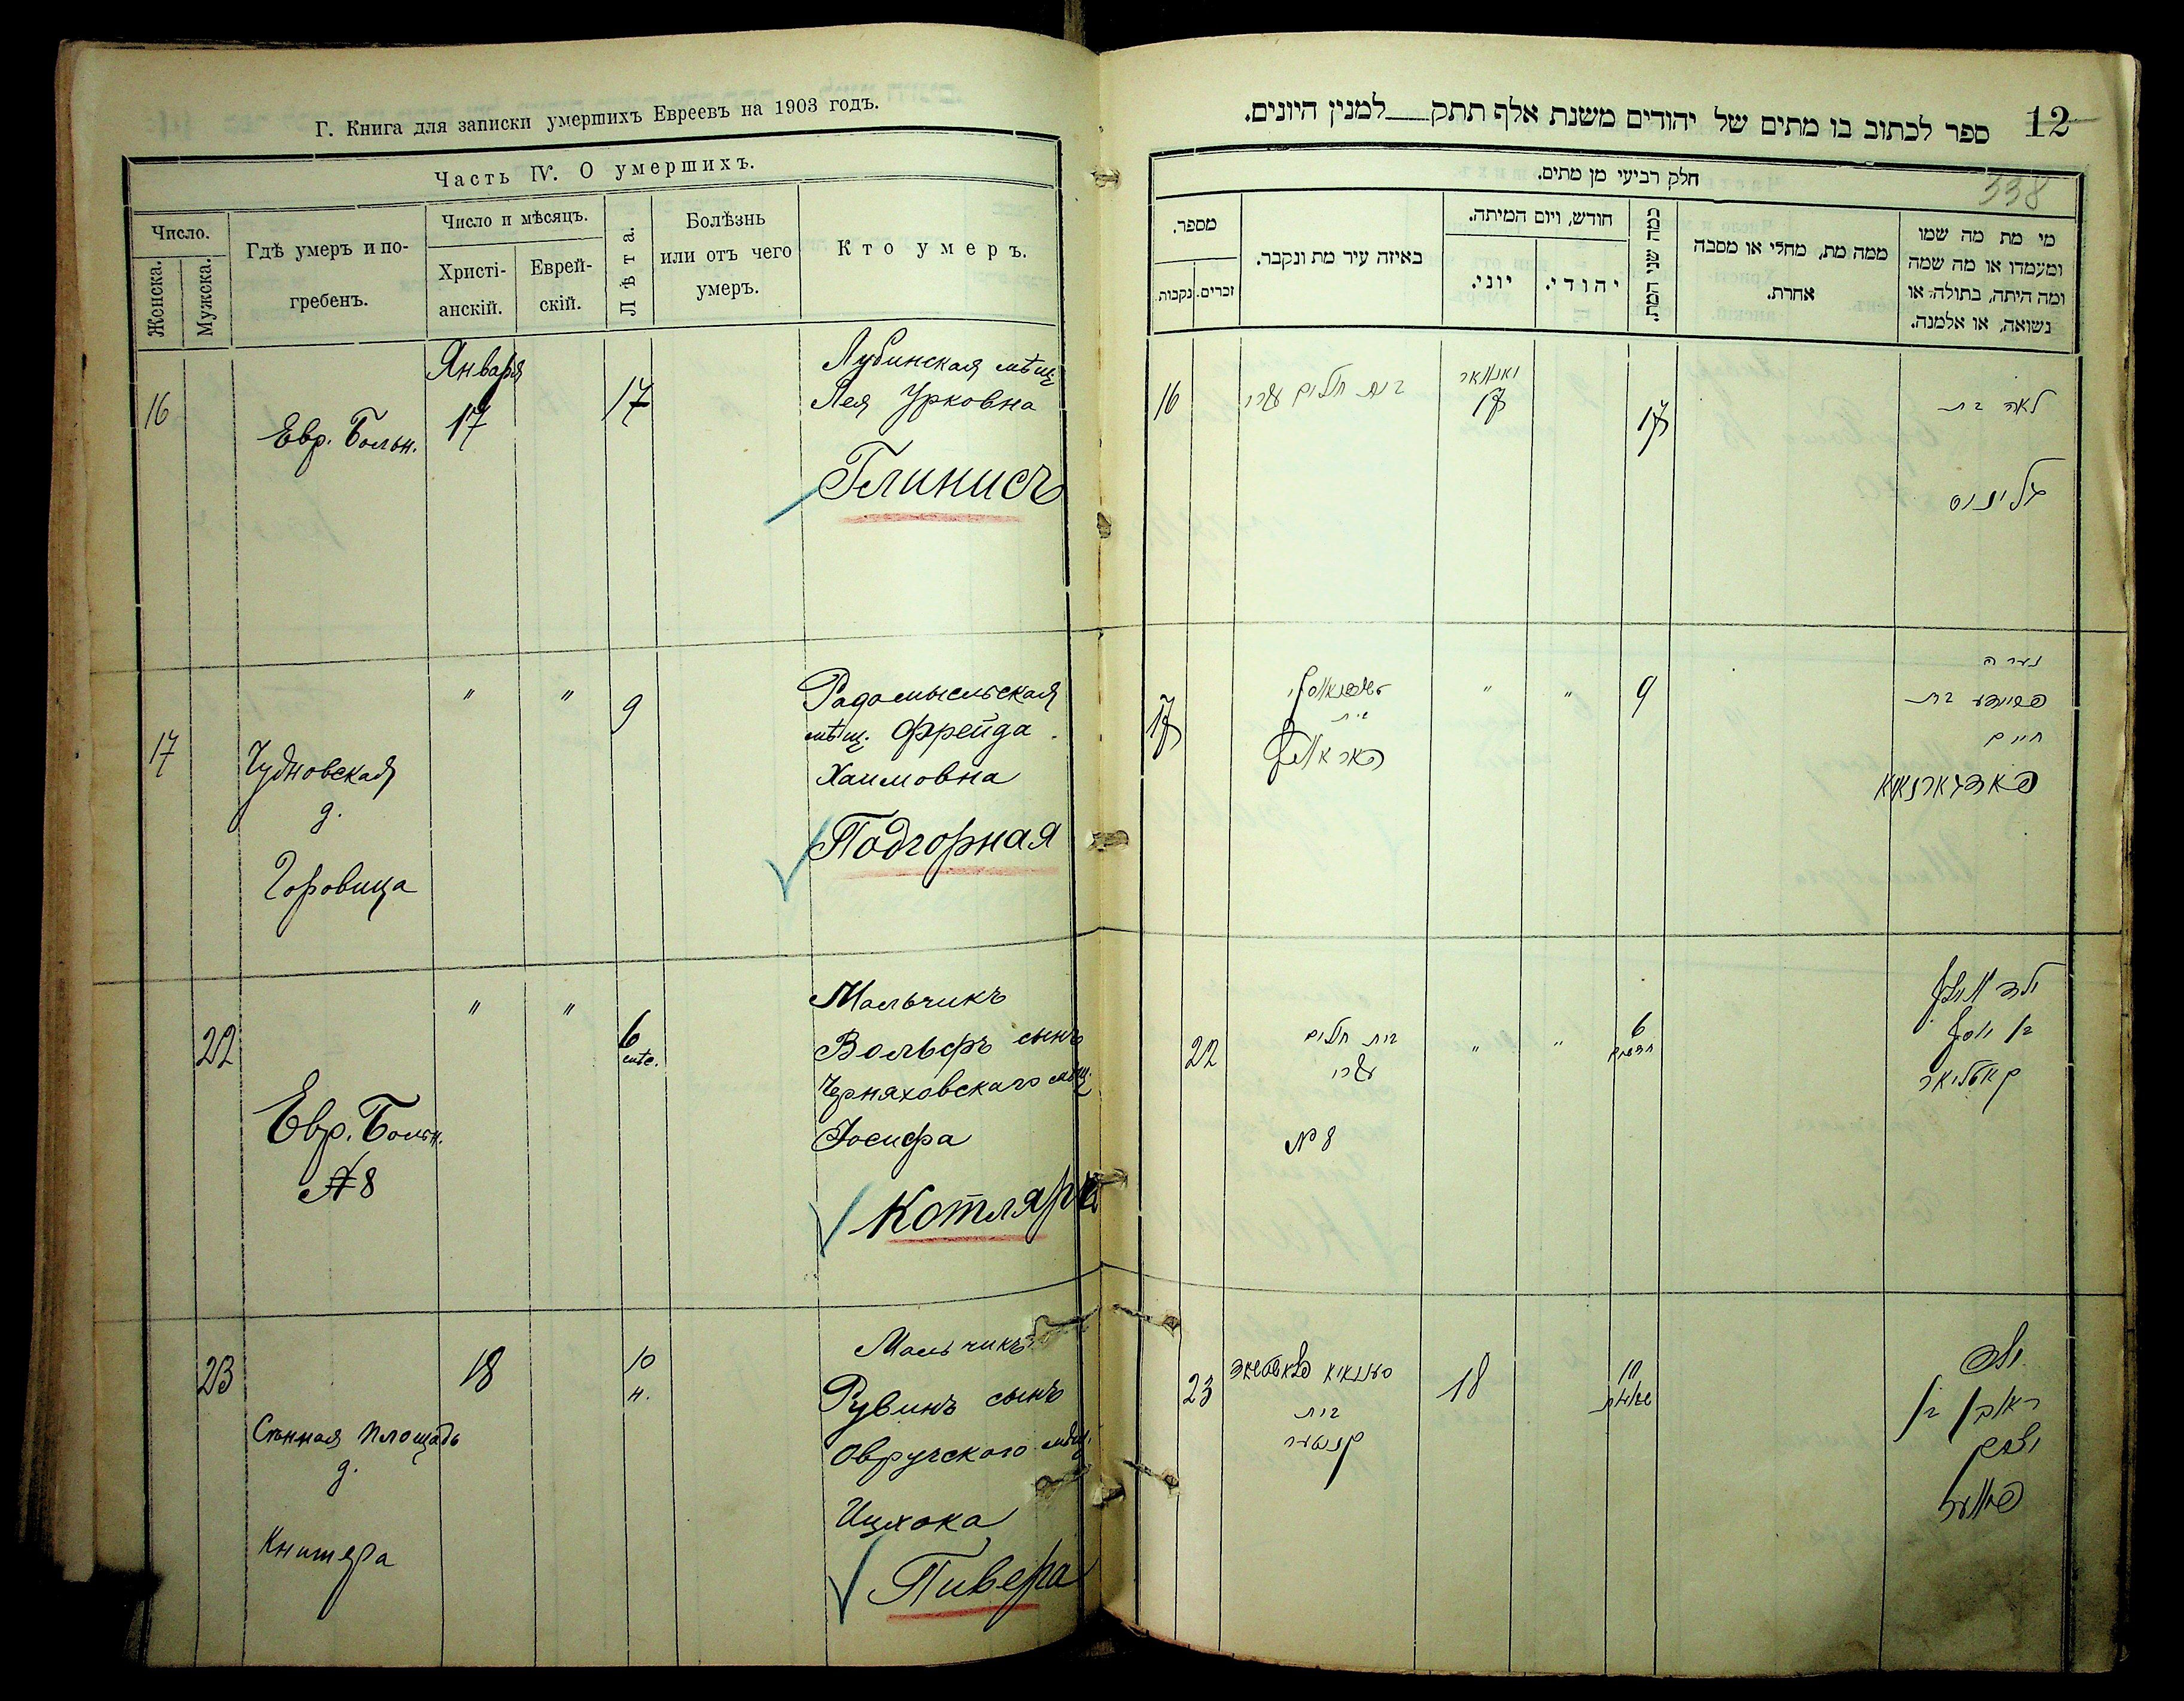 Г. Книга для записки умершихъ Евреевъ на 1903 годъ.
Часть IV. О умершихъ.
Число.
Женска.
Мужска.
Гдѣ умеръ и по-
гребенъ.
Число и мѣсяцъ.
Христі-
анскій.
Еврей-
скій.
Лѣта.
Болѣзнь
или отъ чего
умеръ.
Кто умеръ.
16
Евр. Больн.
Января
17
17
Лубинская мѣщ.
Лея Урковна
Глинисъ
17
Чудновская
д.
Горовица
"
"
9
Радомысльская
мѣщ. Фрейда
Хаимовна
Подгорная
22
Евр. Больн.
№ 8
"
"
6
мѣс.
Мальчикъ
Вольфъ сынъ
Черняховскаго мѣщ.
Іосифа
Котляръ
23
Сѣнная площадь
д.
Книтера
18
10
н.
Мальчикъ
Рувинъ сынъ
Овручскаго мѣщ.
Ицхока
Пивера
12
ספר לכתוב בו מתים של יהודים משנת אלף תתק למנין היונים.
338
חלק רביעי מן מתים.
מספר.
נקבות.
זכרים.
באיזה עיר מת ונקבר.
חודש, ויום המיתה.
יוני.
יהודי.
כמה שני המת.
ממה מת, מחלי או מסבה
אחרת.
מי מת מה שמו
ומעמדו או מה שמה
ומה היתה, בתולה, או
נשואה, או אלמנה.
16
בית חולים עברי
יאנואר
17
17
לאה בת
גלינוס
17
בית
"
"
9
נערה
פריידע בת
חיים
פאדגארנאיא
22
בית חולים
עברי
№ 8
"
"
6
חדשים
ילד וואלף
בן יוסף
קאטליאר
23
סענאיא פלאשטשאד
בית
קניטער
18
10
שבועות
ילד
ראובן בן
יצחק
פיווער